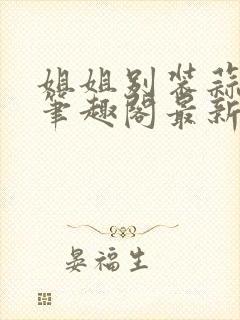 姐姐别装蒜
笔趣阁最新
晏福生